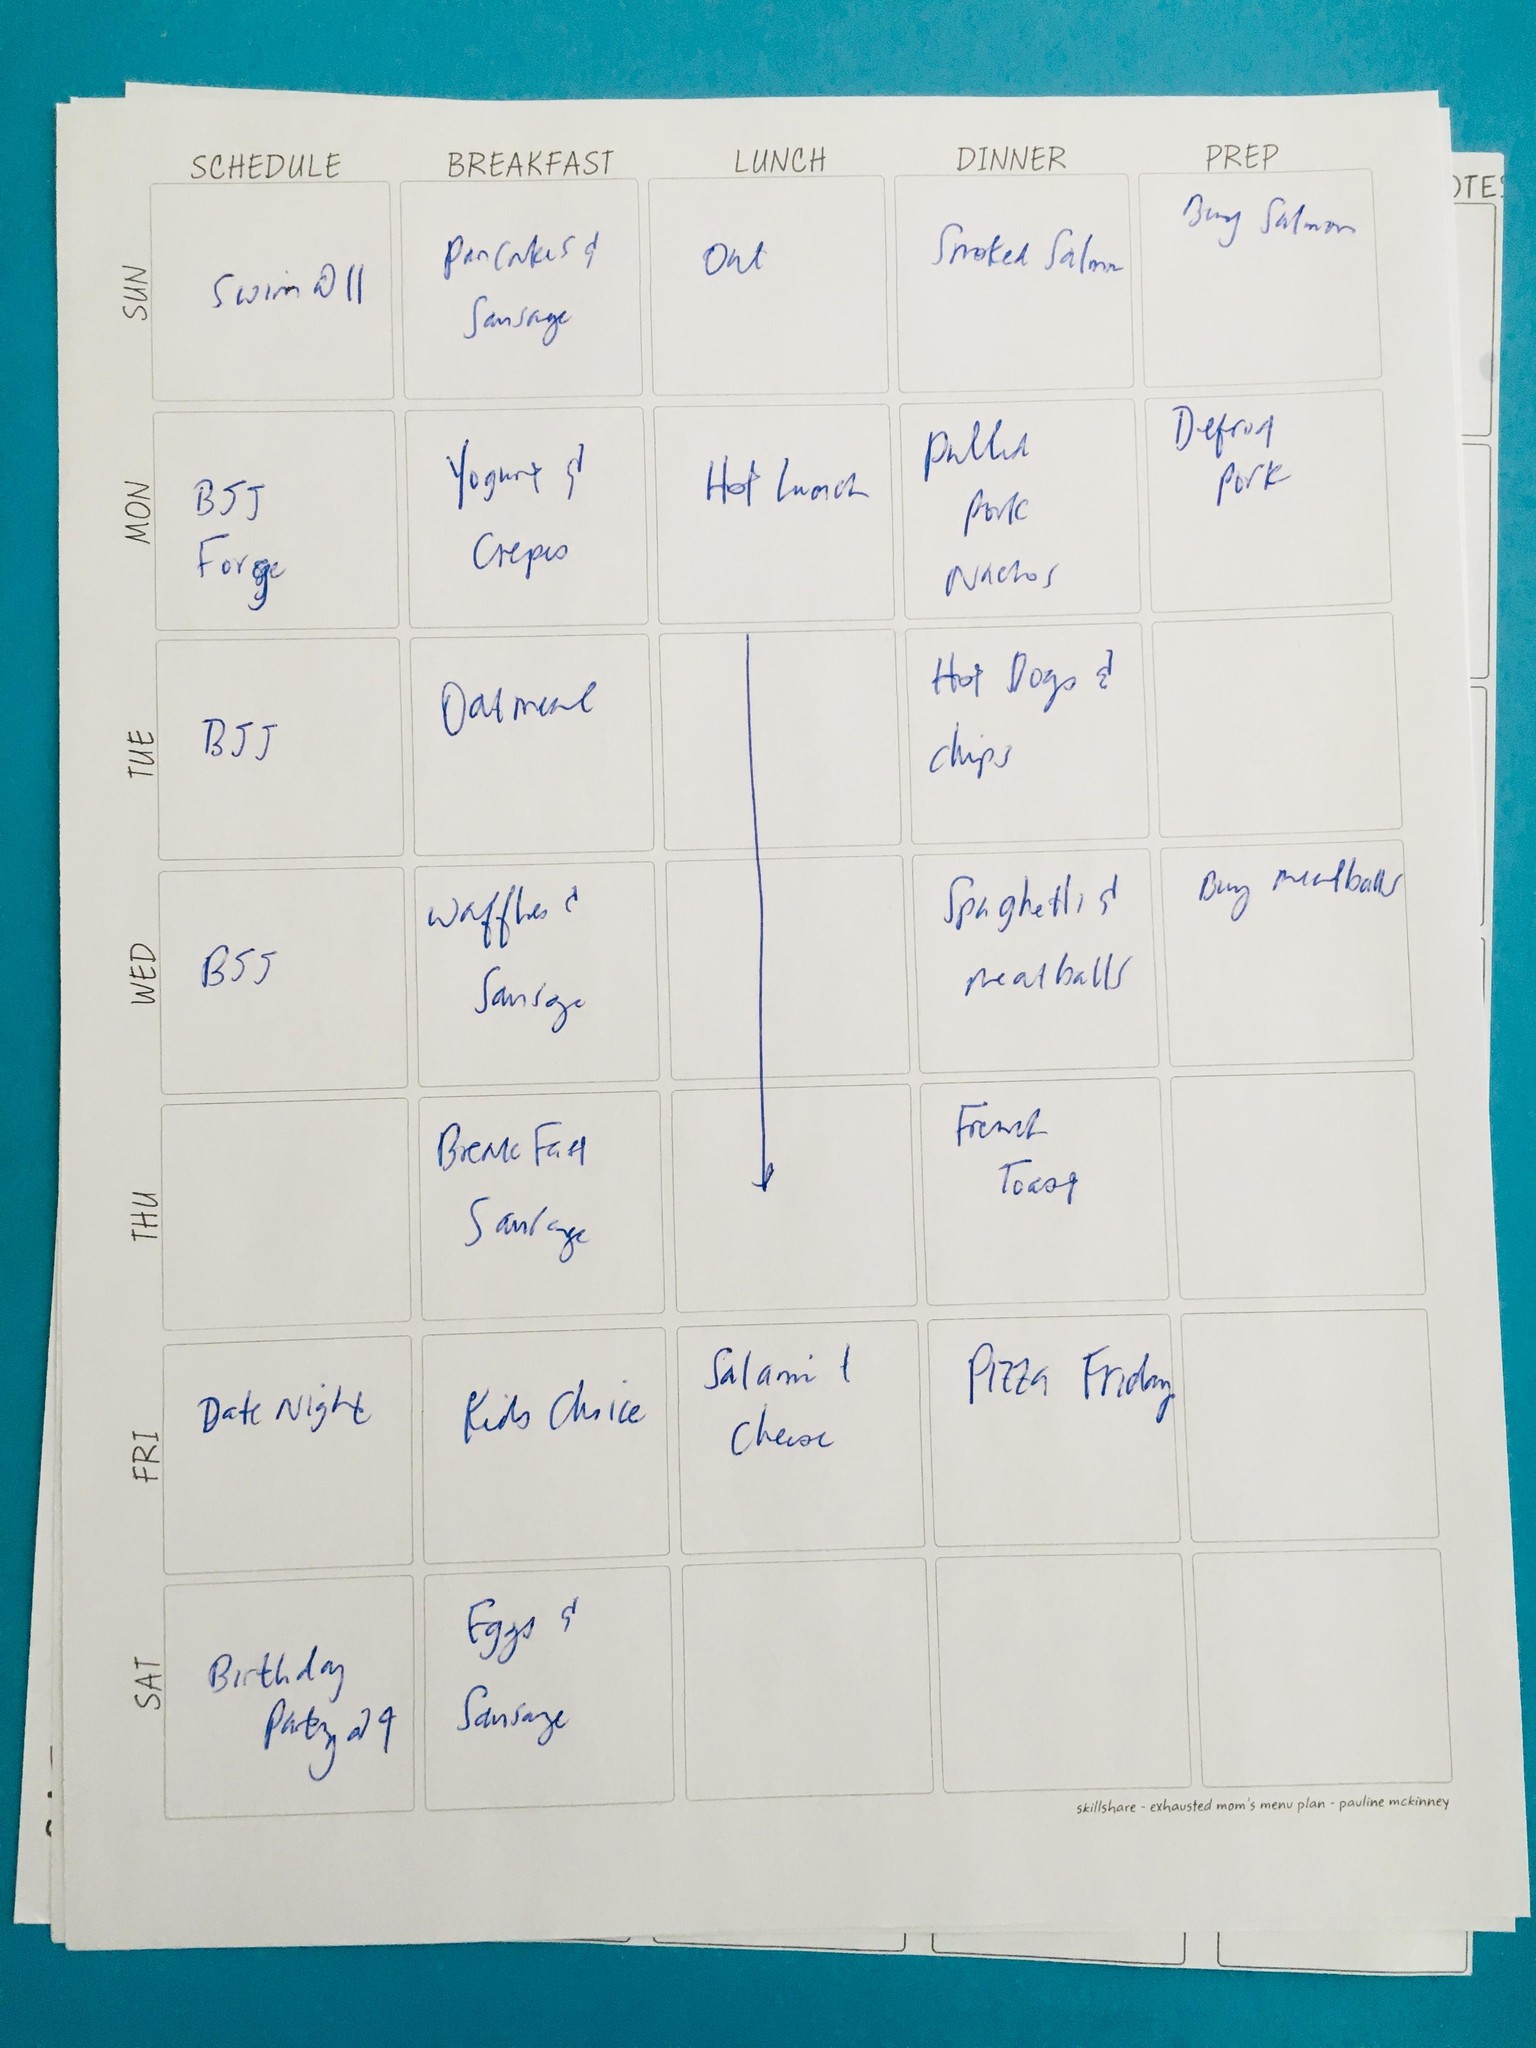 SCHEDULE BREAKFAST LUNCH DINNER PREP
OTES
SUN
Swim @ 11
Pancakes &
Sausage
Out
Smoked Salmon
Buy Salmon
MON
BJJ
Forge
Yogurt &
Crepes
Hot Lunch
Pulled
Pork
Nachos
Defrost
Pork
TUE
BJJ
Oatmeal
Hot Dogs &
chips
WED
BJJ
Waffles &
Sausage
Spaghetti &
meatballs
Buy meatballs
THU
Breakfast
Sausage
French
Toast
FRI
Date Night
Kids Choice
Salami &
Cheese
Pizza Friday
SAT
Birthday
Party @ 9
Eggs &
Sausage
skillshare - exhausted mom's menu plan - pauline mckinney